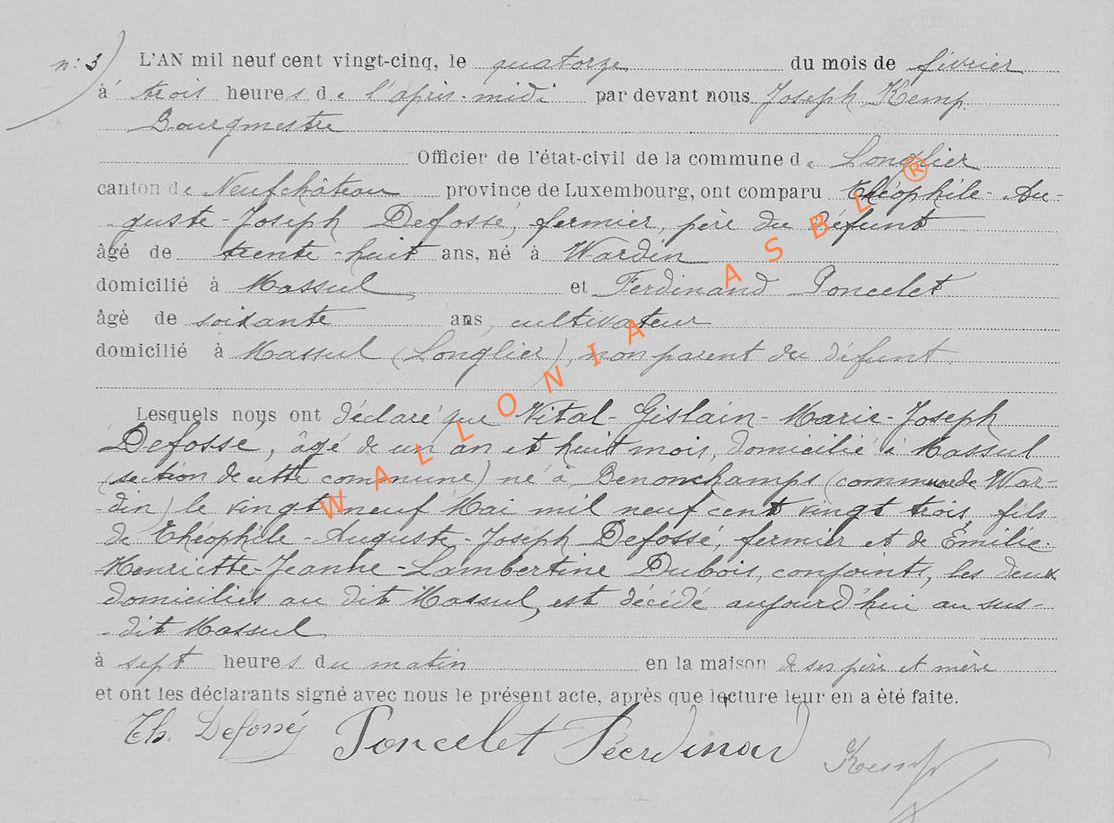 n: 3) L'AN mil neuf cent vingt-cinq, le quatorze du mois de février
à trois heures de l'après-midi par devant nous Joseph Kemp
Bourgmestre
Officier de l'état-civil de la commune de Longlier
canton de Neufchâteau province de Luxembourg, ont comparu Théophile-Au-
-guste-Joseph Defossé, fermier, père du défunt
âgé de trente-huit ans, né à Wardin
domicilié à Massul et Ferdinand Poncelet
âgé de soixante ans, cultivateur
domicilié à Massul (Longlier), non parent du défunt
Lesquels nous ont déclaré que Vital-Gislain-Marie-Joseph
Defossé, âgé de un an et huit mois, domicilié à Massul
(section de cette commune) né à Benonchamps (commune de War-
-din) le vingt neuf Mai mil neuf cent vingt trois, fils
de Théophile-Auguste-Joseph Defossé, fermier et de Emilie-
Henriette-Jeanne-Lambertine Dubois, conjoints, les deux
domiciliés au dit Massul, est décédé aujourd'hui au sus-
-dit Massul
à sept heures du matin en la maison de ses père et mère
et ont les déclarants signé avec nous le présent acte, après que lecture leur en a été faite.
Th. Defossé Poncelet Ferdinand Kemp
WALLONIA ASBL ®